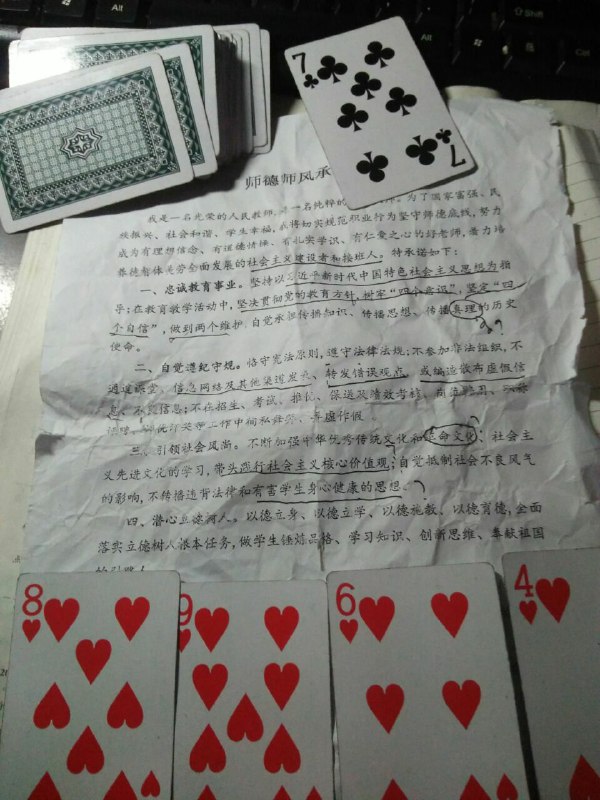 Shift
Alt
Alt
Ctrl
7
7
师德师风承
我是一名光荣的人民教师,是一名纯粹的 师。为了国家富强、民
族振兴、社会和谐、学生幸福,我将切实规范职业行为坚守师德底线,努力
成为有理想信念、有道德情操、有扎实学识、有仁爱之心的好老师,着力培
养德智体美劳全面发展的社会主义建设者和接班人。特承诺如下:
一、忠诚教育事业。坚持以习近平新时代中国特色社会主义思想为指
导;在教育教学活动中,坚决贯彻党的教育方针,树牢“四个意识”,坚定“四
个自信”,做到两个维护,自觉承担传播知识、传播思想、传播真理的历史
使命。
二、自觉遵纪守规。恪守宪法原则,遵守法律法规;不参加非法组织,不
通过课堂、信息网络及其他渠道发表、转发错误观点,或编造散布虚假信
息、不良信息;不在招生、考试、推优、保送及绩效考核、
工作中徇私舞弊、弄虚作假。
三、引领社会风尚。不断加强中华优秀传统文化和革命文化、社会主
义先进文化的学习,带头践行社会主义核心价值观;自觉抵制社会不良风气
的影响,不传播违背法律和有害学生身心健康的思想。?
四、潜心立德树人。以德立身、以德立学、以德施教、以德育德,全面
落实立德树人根本任务,做学生锤炼品格、学习知识、创新思维、奉献祖国
的引路人
8
9
6
4